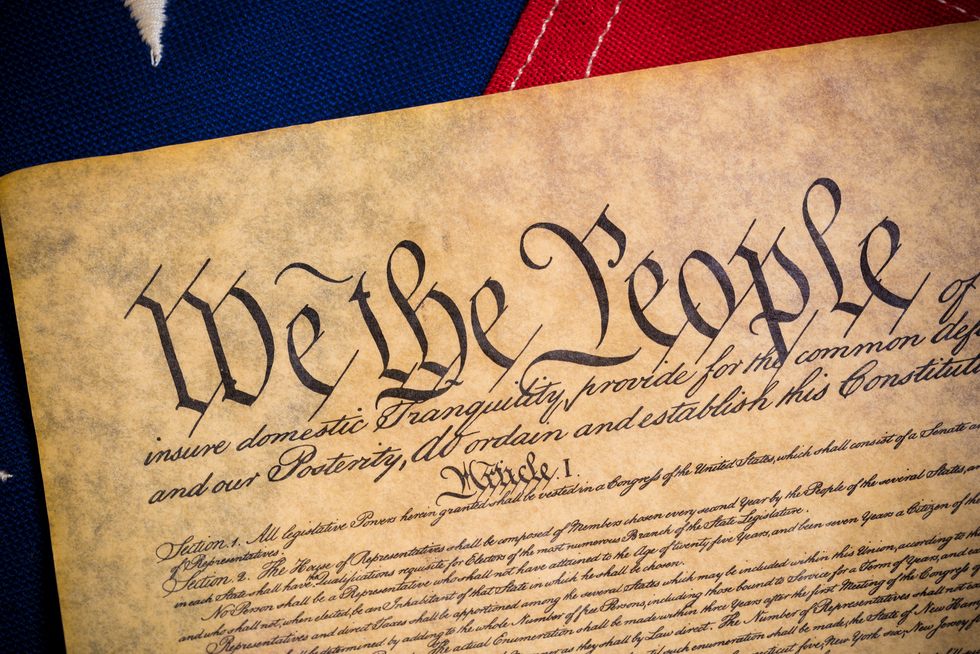 We the People of
insure domestic Tranquility, provide for the common def
and our Posterity, do ordain and establish this Constitut
Article. I.
Section. 1. All legislative Powers herein granted shall be vested in a Congress of the United States, which shall consist of a Senate
of Representatives.
Section. 2. The House of Representatives shall be composed of Members chosen every second Year by the People of the several States,
in each State shall have the Qualifications requisite for Electors of the most numerous Branch of the State Legislature.
No Person shall be a Representative who shall not have attained to the Age of twenty five Years, and been seven Years a Citizen of the
and who shall not, when elected, be an Inhabitant of that State in which he shall be chosen.
Representatives and direct Taxes shall be apportioned among the several States which may be included within this Union, according to
determined by adding to the whole Number of free Persons, including those bound to Service for a Term of Years, and
The actual Enumeration shall be made within three Years after the first Meeting of the Congress of
as they shall by Law direct. The Number of Representatives shall not
such enumeration shall be made, the State of New
five, New York six, New Jersey